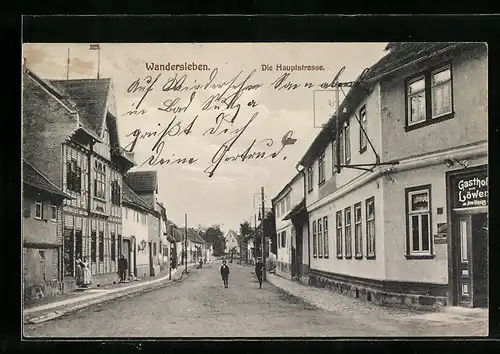 Wandersleben. Die Hauptstrasse.
Auf Wiedersehen Sonnabend
in Bad Sulza
grüßt Dich
Deine Gertrud.
Gasthof
zum
Löwen